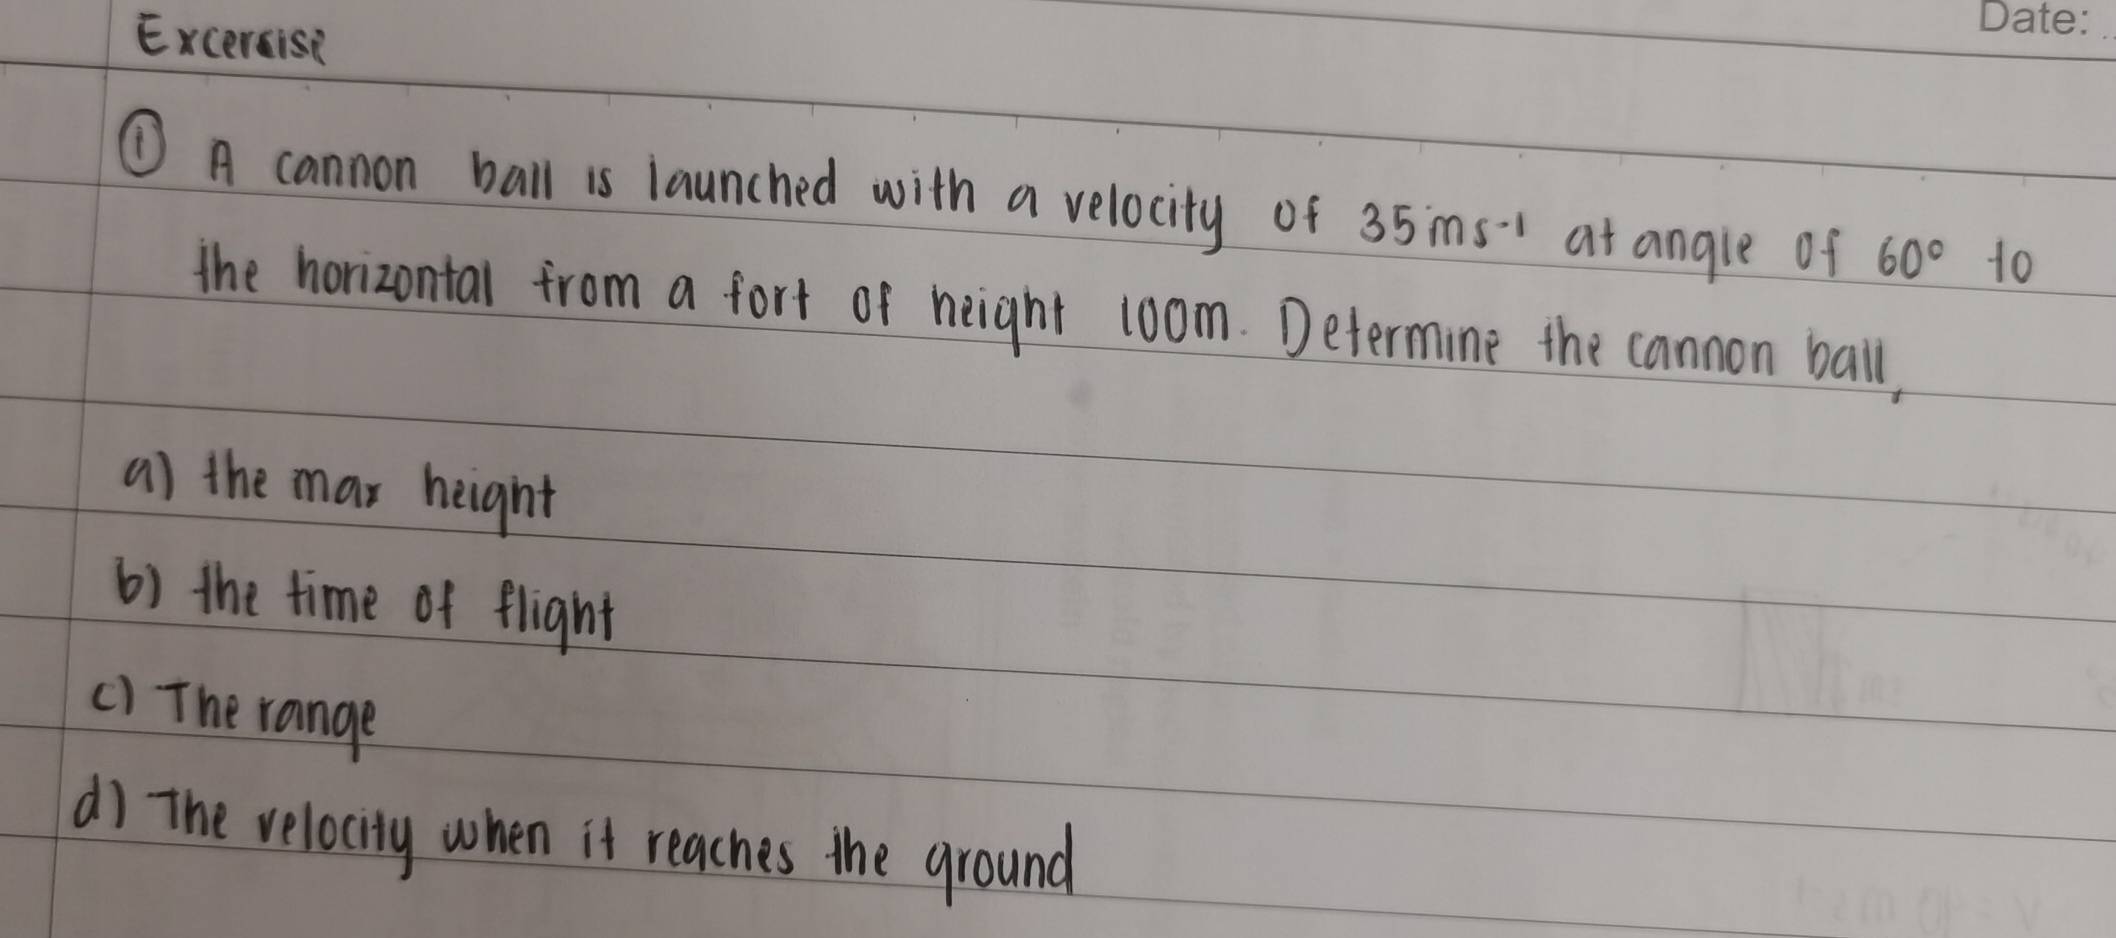 Date:
Excercise
① A cannon ball is launched with a velocity of 35ms-1 at angle of 60° to
the horizontal from a fort of height 100m. Determine the cannon ball,
a) the max height
b) the time of flight
c) The range
d) The velocity when it reaches the ground